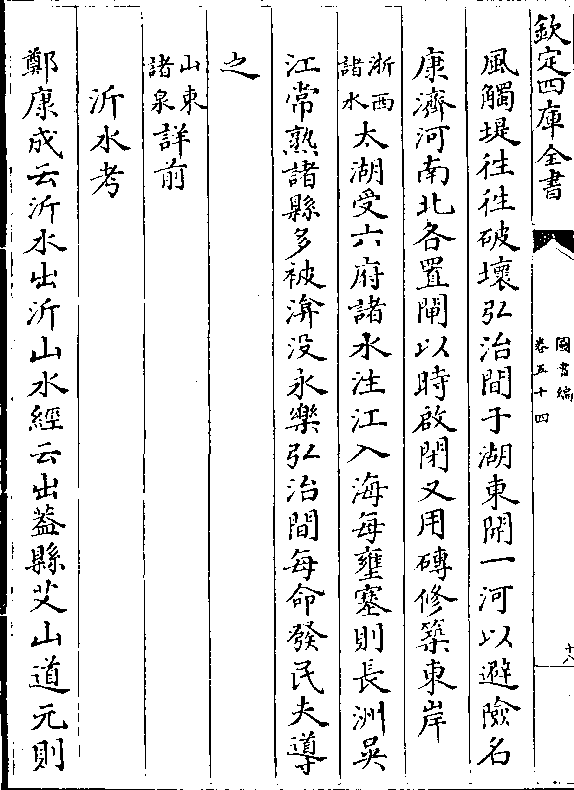 欽定四庫全書
圖書編
卷五十四
十八
風觸堤徃徃破壞弘治間于湖東開一河以避險名
康濟河南北各置閘以時啟閉又用磚修築東岸
浙西諸水太湖受六府諸水注江入海每壅塞則長洲吳
江常熟諸縣多被渰没永樂弘治間每命發民夫導
之
山東諸泉詳前
沂水考
鄭康成云沂水出沂山水經云出葢縣艾山道元則